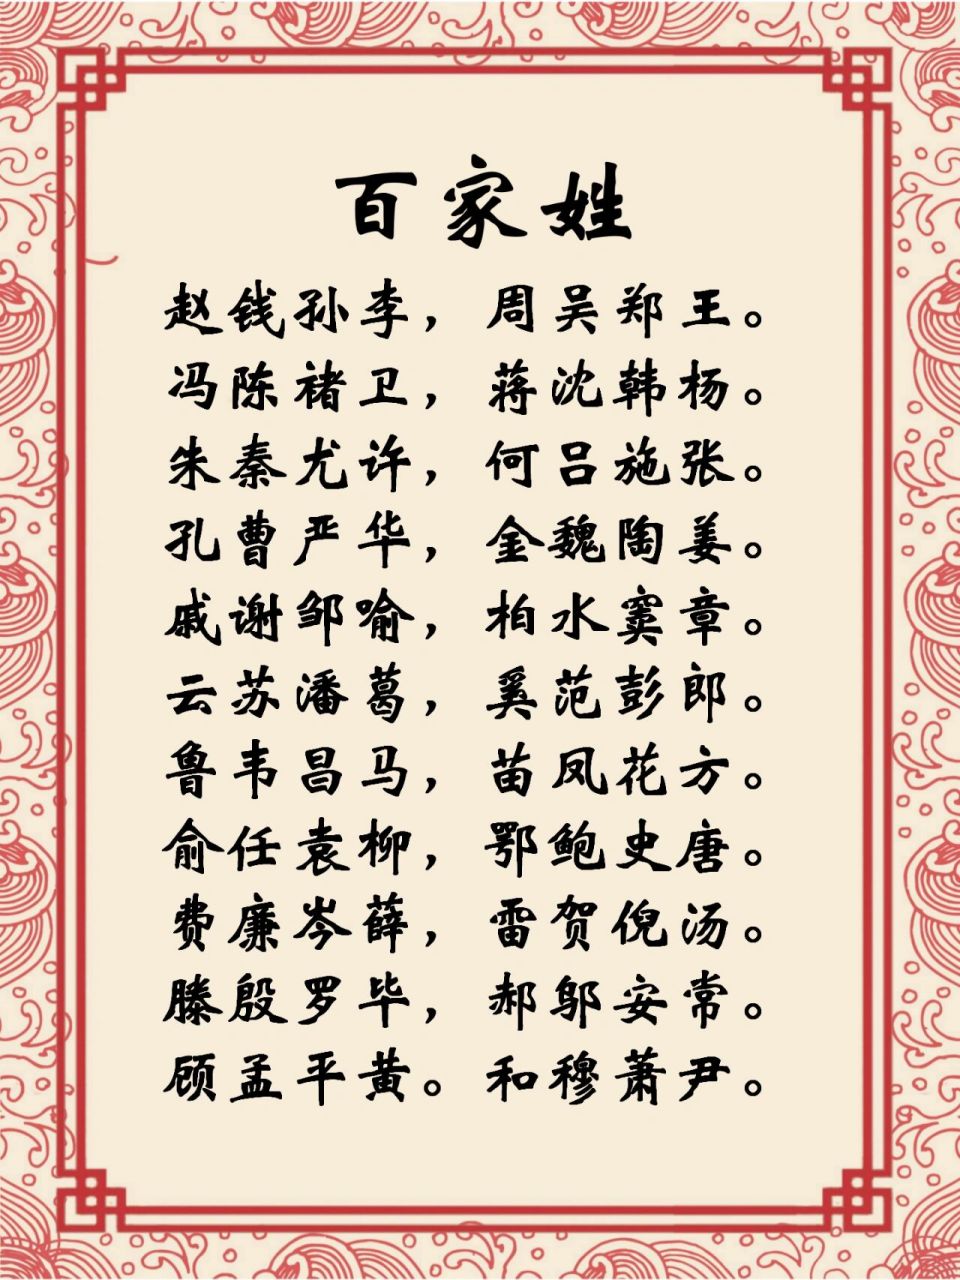 百家姓
赵钱孙李，周吴郑王。
冯陈褚卫，蒋沈韩杨。
朱秦尤许，何吕施张。
孔曹严华，金魏陶姜。
戚谢邹喻，柏水窦章。
云苏潘葛，奚范彭郎。
鲁韦昌马，苗凤花方。
俞任袁柳，鄂鲍史唐。
费廉岑薛，雷贺倪汤。
滕殷罗毕，郝邬安常。
顾孟平黄。和穆萧尹。